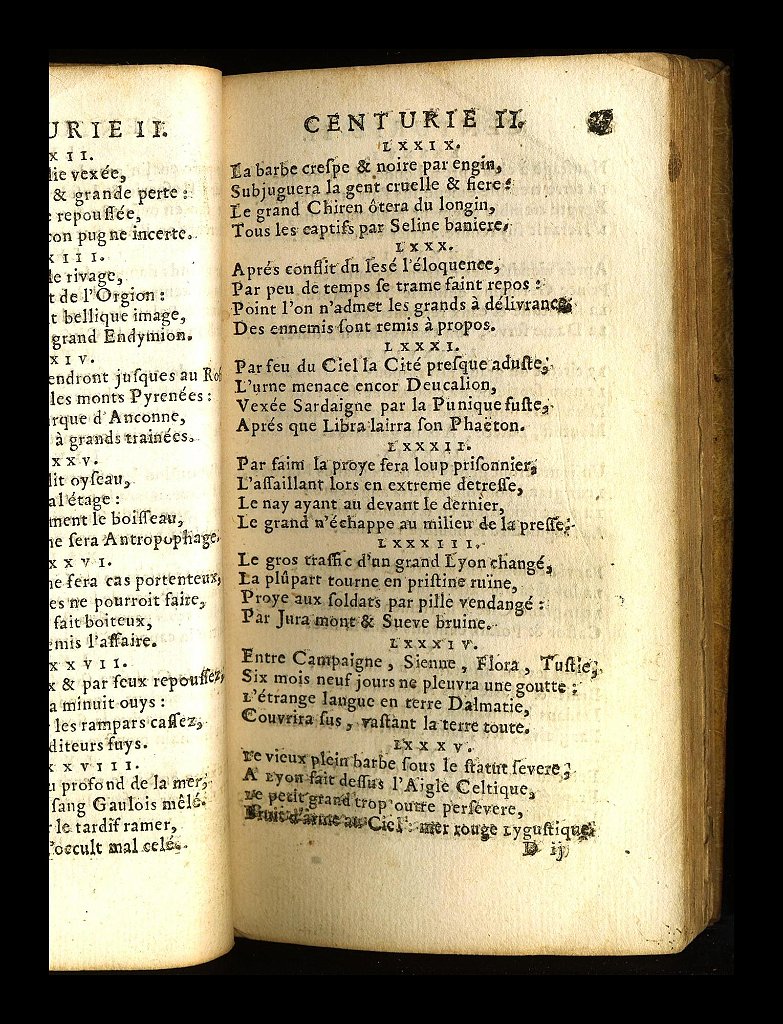 URIE II.
XII.
lie vexée,
& grande perte :
repouſſée,
con pugne incerte.
XIII.
le rivage,
t de l'Orgion :
t bellique image,
grand Endymion.
XIV.
endront juſques au Roſ
les monts Pyrenées :
rque d'Anconne,
à grands trainées.
XXV.
lit oyſeau,
a l'étage :
ment le boiſſeau,
ne ſera Antropophage.
XXVI.
ne ſera cas portenteux,
es ne pourroit faire,
fait boiteux,
emis l'affaire.
XXVII.
x & par feux repouſſez,
a minuit ouys :
les rampars caſſez,
diteurs fuys.
XXVIII.
u profond de la mer,
ſang Gaulois mêlé.
r le tardif ramer,
l'occult mal celé.
CENTURIE II.
LXXIX.
La barbe creſpe & noire par engin,
Subjuguera la gent cruelle & fiere :
Le grand Chiren ôtera du longin,
Tous les captifs par Seline baniere,
LXXX.
Aprés conflit du leſé l'éloquence,
Par peu de temps ſe trame faint repos :
Point l'on n'admet les grands à délivrance,
Des ennemis ſont remis à propos.
LXXXI.
Par feu du Ciel la Cité preſque aduſte,
L'urne menace encor Deucalion,
Vexée Sardaigne par la Punique fuſte,
Aprés que Libra lairra ſon Phaëton.
LXXXII.
Par faim la proye fera loup priſonnier,
L'aſſaillant lors en extreme detreſſe,
Le nay ayant au devant le dernier,
Le grand n'échappe au milieu de la preſſe.
LXXXIII.
Le gros traffic d'un grand Lyon changé,
La plûpart tourne en priſtine ruine,
Proye aux ſoldats par pille vendangé :
Par Jura mont & Sueve bruine.
LXXXIV.
Entre Campaigne, Sienne, Flora, Tuſtie,
Six mois neuf jours ne pleuvra une goutte :
L'étrange langue en terre Dalmatie,
Couvrira ſus, vaſtant la terre toute.
LXXXV.
Le vieux plein barbe ſous le ſtatut ſevere,
A Lyon fait deſſus l'Aigle Celtique,
Le petit grand trop outre perſevere,
Bruit d'arme au Ciel : mer rouge Lyguſtique.
D ij